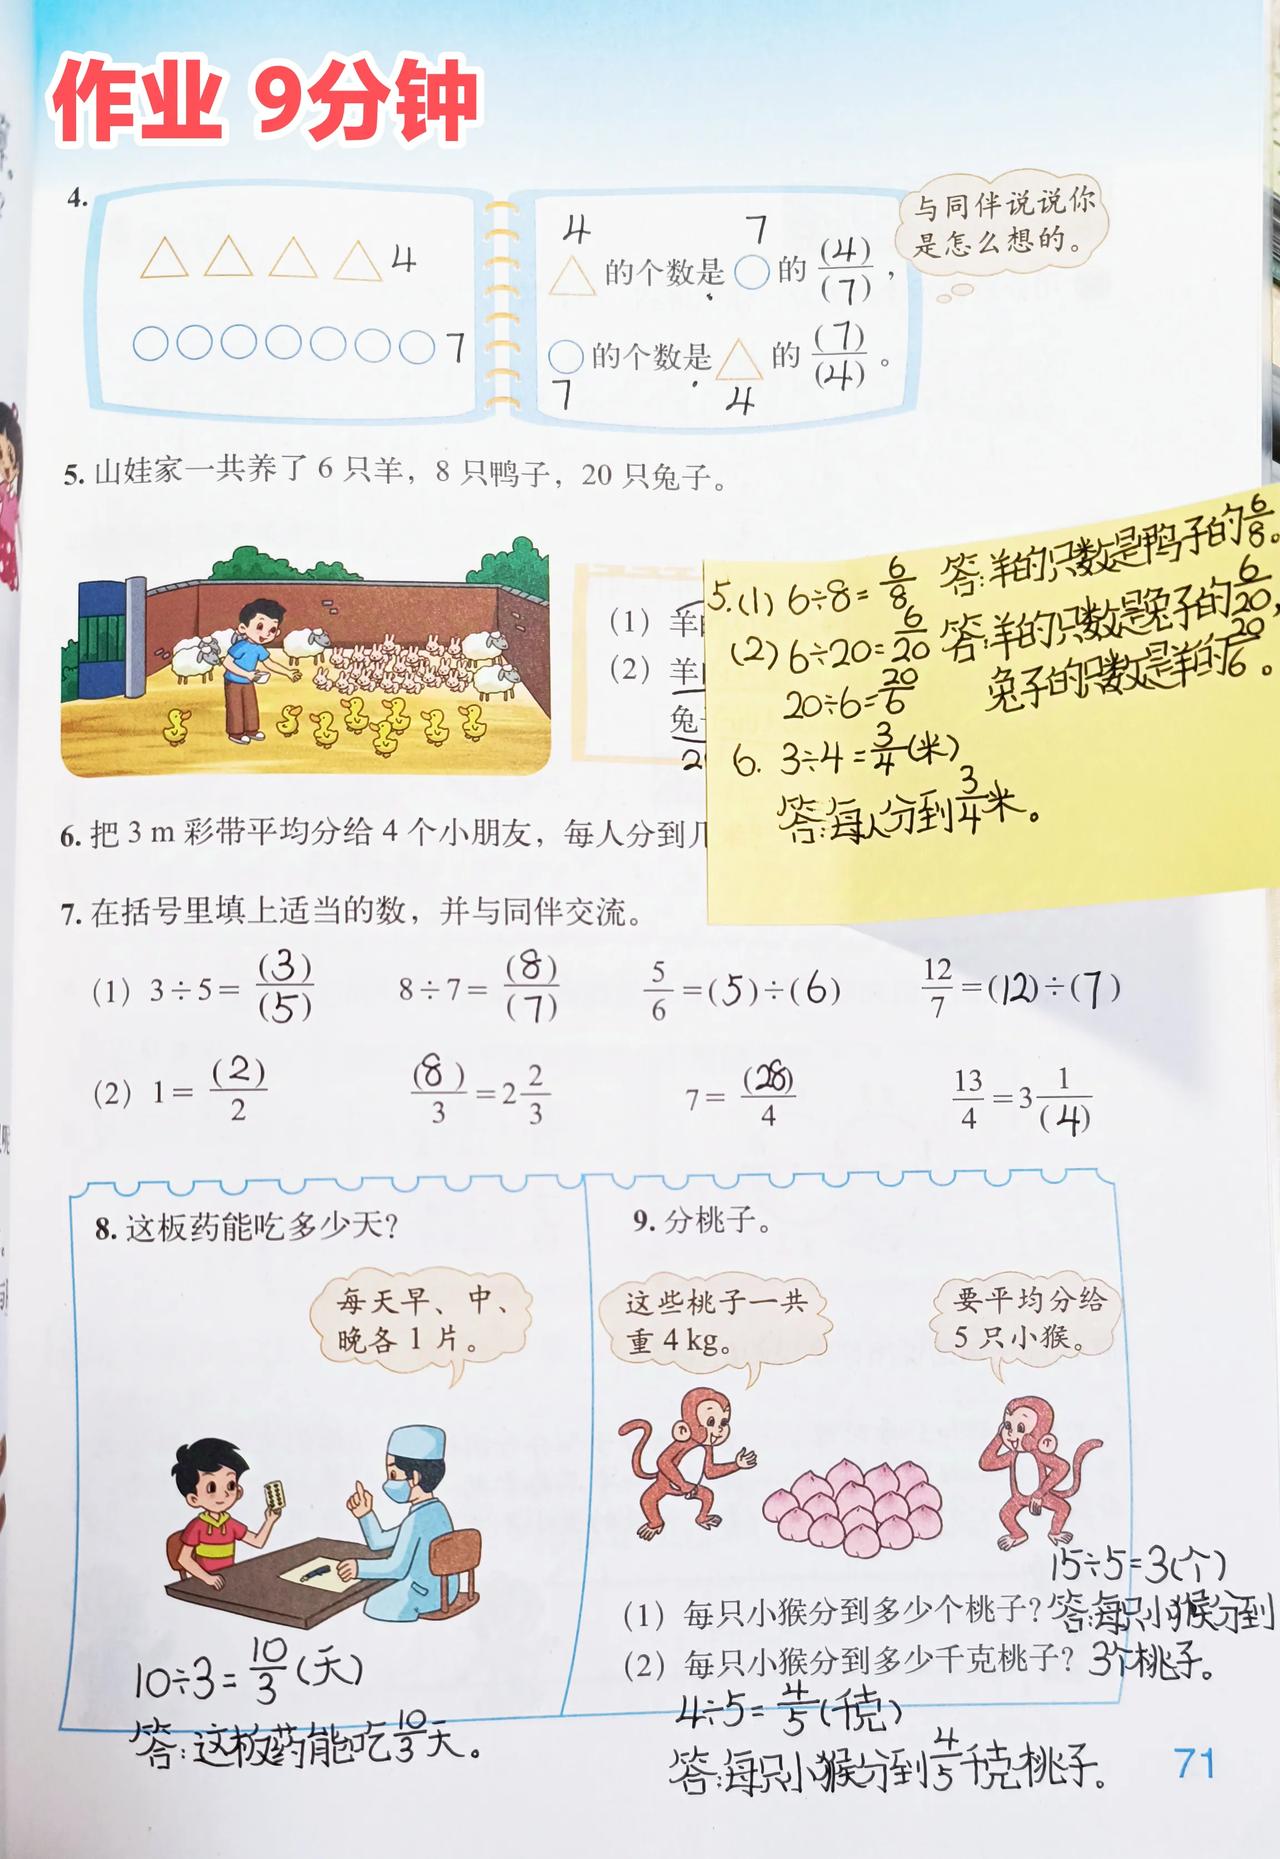 作业 9分钟
4.
4
7
4 7
△的个数是○的(4)/(7)，
○的个数是△的(7)/(4)。
7 4
与同伴说说你
是怎么想的。
5. 山娃家一共养了 6 只羊，8 只鸭子，20 只兔子。
(1) 羊
(2) 羊
兔
5.(1) 6÷8=6/8 答:羊的只数是鸭子的6/8。
(2) 6÷20=6/20 答:羊的只数是兔子的6/20,
20÷6=20/6 兔子的只数是羊的20/6。
6. 3÷4=3/4(米)
答:每人分到3/4米。
6. 把 3 m 彩带平均分给 4 个小朋友，每人分到几
7. 在括号里填上适当的数，并与同伴交流。
(1) 3÷5=(3)/(5) 8÷7=(8)/(7) 5/6=(5)÷(6) 12/7=(12)÷(7)
(2) 1=(2)/2 (8)/3=2 2/3 7=(28)/4 13/4=3 1/(4)
8. 这板药能吃多少天?
每天早、中、
晚各 1 片。
10÷3=10/3(天)
答:这板药能吃10/3天。
9. 分桃子。
这些桃子一共
重 4 kg。
要平均分给
5 只小猴。
15÷5=3(个)
(1) 每只小猴分到多少个桃子? 答:每只小猴分到
(2) 每只小猴分到多少千克桃子? 3个桃子。
4÷5=4/5(千克)
答:每只小猴分到4/5千克桃子。
71